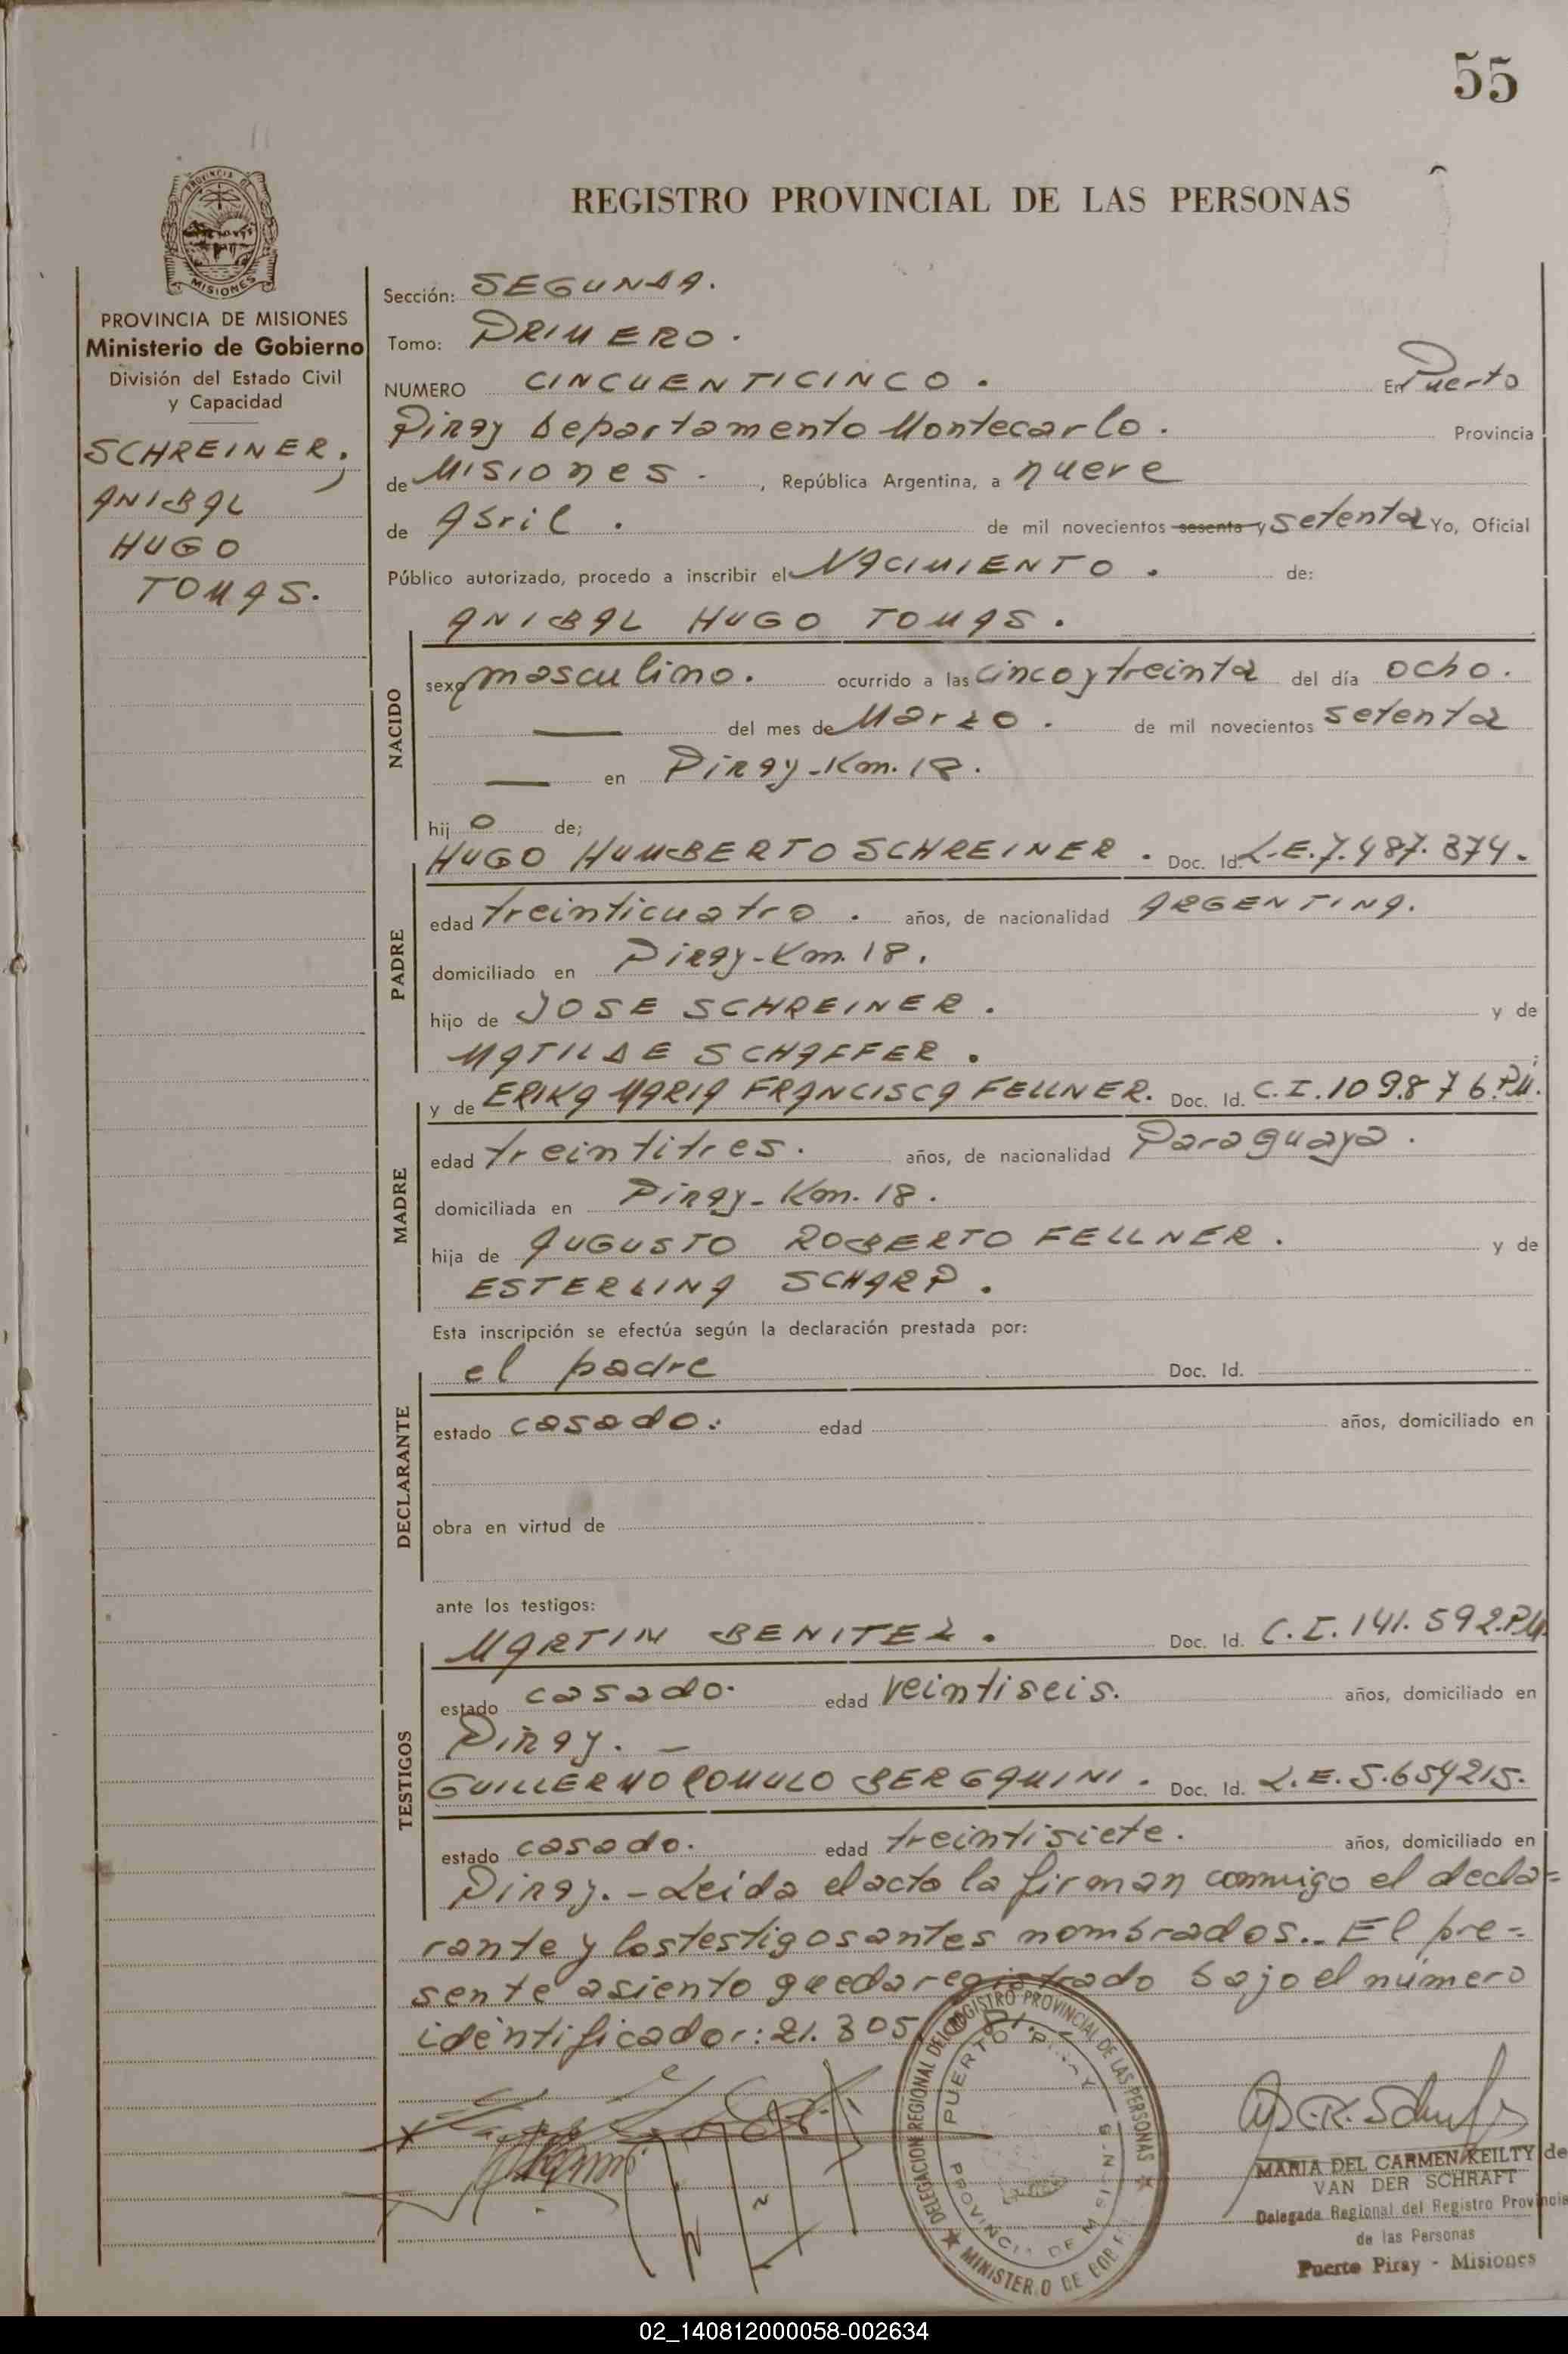 55
REGISTRO PROVINCIAL DE LAS PERSONAS
PROVINCIA DE MISIONES
PROVINCIA DE MISIONES
Ministerio de Gobierno
División del Estado Civil
y Capacidad
SCHREINER,
ANIBAL
HUGO
TOMAS.
Sección: SEGUNDA.
Tomo: PRIMERO.
NUMERO CINCUENTICINCO. En Puerto
Piray Departamento Montecarlo. Provincia
de Misiones., República Argentina, a nueve
de Abril. de mil novecientos sesenta y setenta Yo, Oficial
Público autorizado, procedo a inscribir el NACIMIENTO. de:
ANIBAL HUGO TOMAS.
NACIDO
sexo masculino. ocurrido a las cinco y treinta del día ocho.
— del mes de Marzo. de mil novecientos setenta
— en Piray-Km. 18.
hij o de;
HUGO HUMBERTO SCHREINER. Doc. Id. L.E. 7.487.374.
PADRE
edad treinticuatro. años, de nacionalidad ARGENTINA.
domiciliado en Piray-Km. 18.
hijo de JOSE SCHREINER. y de
MATILDE SCHAFFER.;
y de ERIKA MARIA FRANCISCA FELLNER. Doc. Id. C.I. 109.876. P.M.
MADRE
edad treintitres. años, de nacionalidad Paraguaya.
domiciliada en Piray-Km. 18.
hija de AUGUSTO ROBERTO FELLNER. y de
ESTERLINA SCHARP.
Esta inscripción se efectúa según la declaración prestada por:
el padre Doc. Id.
DECLARANTE
estado casado. edad años, domiciliado en
obra en virtud de
ante los testigos:
MARTIN BENITEZ. Doc. Id. C.I. 141.592. P.M.
TESTIGOS
estado casado. edad veintiseis. años, domiciliado en
Piray. —
GUILLERMO ROMULO BERGAMINI. Doc. Id. L.E. 5.654215.
estado casado. edad treintisiete. años, domiciliado en
Piray. - Leida el acta la firman conmigo el decla=
rante y los testigos antes nombrados.. El pre=
sente asiento queda registrado bajo el número
identificador: 21.305
DELEGACION REGIONAL DEL REGISTRO PROVINCIAL DE LAS PERSONAS
PUERTO PIRAY
PROVINCIA DE MISIONES
MINISTERIO DE GOB
MARIA DEL CARMEN KEILTY de
VAN DER SCHRAFT
Delegada Regional del Registro Provincia
de las Personas
Puerto Piray - Misiones
02_140812000058-002634